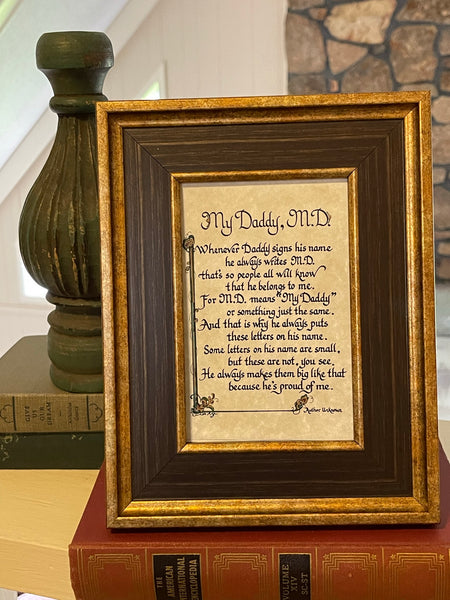 My Daddy, M.D.
Whenever Daddy signs his name
he always writes M.D.
that's so people all will know
that he belongs to me.
For M.D. means "My Daddy"
or something just the same.
And that is why he always puts
these letters on his name.
Some letters on his name are small,
but these are not, you see.
He always makes them big like that
because he's proud of me.
Author Unknown
GIVE
US
OUR
DREAM
THE
AMERICAN
INTERNATIONAL
ENCYCLOPEDIA
VOLUME
XIV
SC-ST